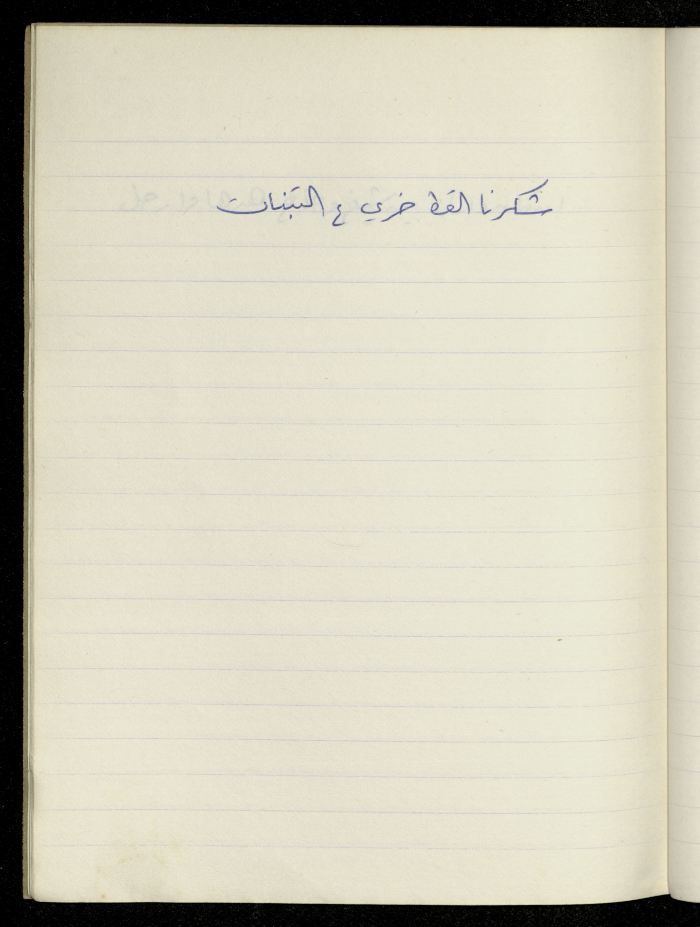 شكرنا القط خري ع التبنات